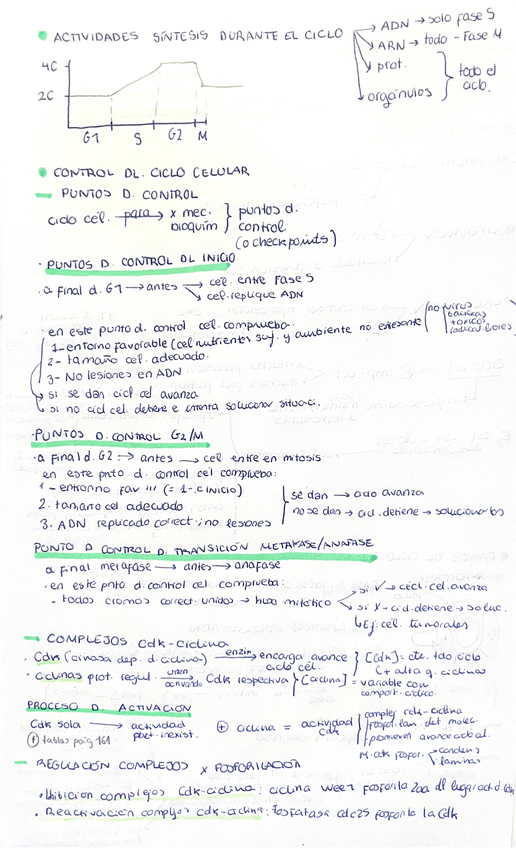 • ACTIVIDADES SÍNTESIS DURANTE EL CICLO
ADN → solo fase S
ARN → todo - Fase M
prot.
orgánulos } todo el ciclo.
4C
2C
G1 S G2 M
• CONTROL DL. CICLO CELULAR
— PUNTOS D. CONTROL
ciclo cel. para → x mec. bioquím } puntos d. control (o checkpoints)
· PUNTOS D. CONTROL DL INICIO
· a final d. G1 → antes → cel. entre Fase S
→ cel. replique ADN
· en este punto d. control cel. comprueba:
1- entorno favorable (cel nutrientes suf. y ambiente no estresante (no virus
bacterias
tóxicos
radical. libres)
2- tamaño cel. adecuado.
3- No lesiones en ADN
→ si se dan cicl cel avanza
→ si no cicl cel. detiene e intenta solucionar situaci.
· PUNTOS D. CONTROL G2/M
· a final d. G2 → antes → cel entre en mitosis
· en este pnto d. control cel comprueba:
1- entorno Fav !!! (= 1- c. INICIO)
2. tamaño cel adecuado
3. ADN replicado correct · no lesiones
se dan → ciclo avanza
no se dan → cicl. detiene → solucionarlos
PUNTO D CONTROL D. TRANSICIÓN METAFASE/ANAFASE
a final metafase → antes → anafase
· en este pnto d. control cel comprueba:
- todos cromos correct. unidos → huso mitótico
si ✓ → cicl. cel. avanza
si X → cicl. detiene → soluc.
↳ Ej: cel. tumorales
— COMPLEJOS Cdk-Ciclina
· Cdk (cinasa dep. d. ciclina) enzim → encarga avance ciclo cel. } [Cdk] = cte. tdo ciclo
(+ alta q. ciclinas
· ciclinas prot. regul. → activando Cdk respectiva } [Ciclina] = variable con
comport. cíclico.
PROCESO D. ACTIVACIÓN
Cdk sola → actividad pract. inexist.
⊕ ciclina = actividad Cdk
complej cdk-ciclina
fosforilan det. molec.
promueven avance
M-cdk fosfor. condens
laminas
⊕ tablas pág 161
— REGULACIÓN COMPLEJOS x FOSFORILACIÓN
· Inhibición complejos Cdk-ciclina: ciclina wee1 fosforila 2aa dl lugar act d. Cdk
· Reactivación complejos cdk-ciclina: fosfatasa cdc25 la Cdk